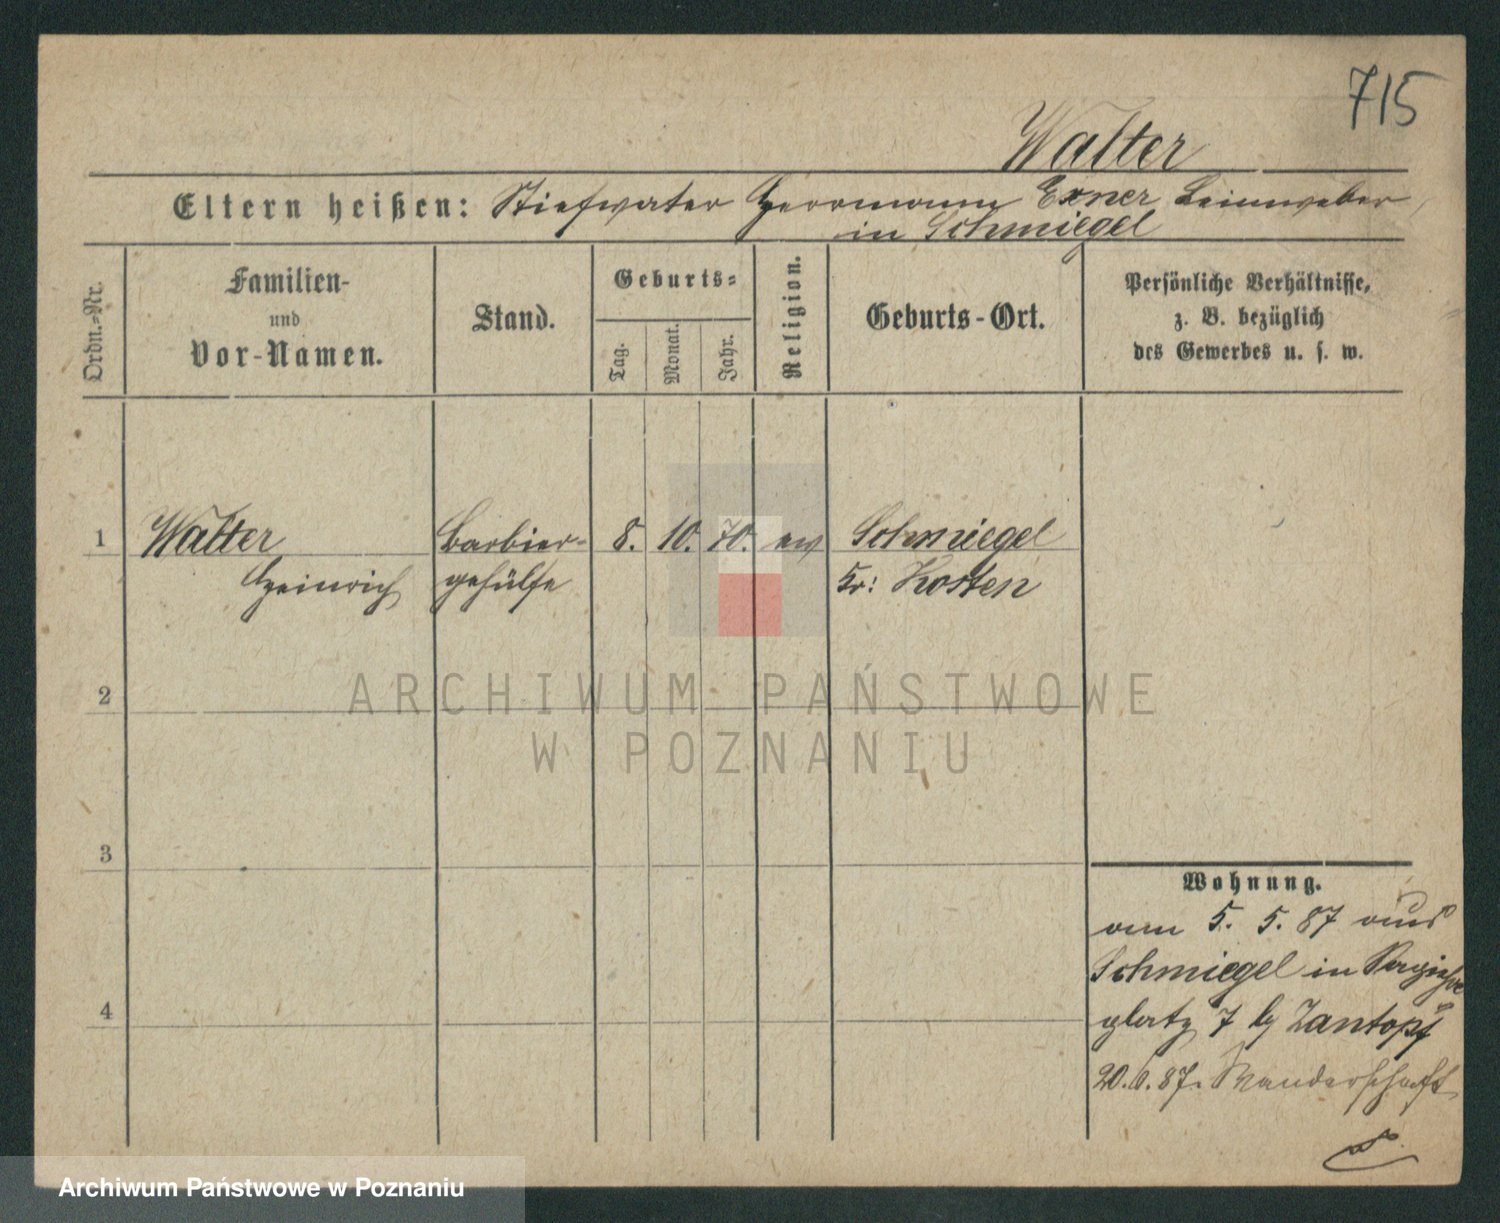 715
Walter
Eltern heißen: Stiefvater Herrmann Exner Leinweber
in Schmiegel
Ordn.-Nr.
Familien-
und
Vor-Namen.
Stand.
Geburts-
Tag.
Monat.
Jahr.
Religion.
Geburts-Ort.
Persönliche Verhältnisse,
z. B. bezüglich
des Gewerbes u. s. w.
1 Walter Barbier- 8. 10. 70. ev Schmiegel
Heinrich gehülfe Kr: Kosten
2
ARCHIWUM PAŃSTWOWE
W POZNANIU
3
Wohnung.
5. 5. 87 aus
Schmiegel in
4
platz 7 by Zantopf
20. 6. 87. Wanderschaft
Archiwum Państwowe w Poznaniu